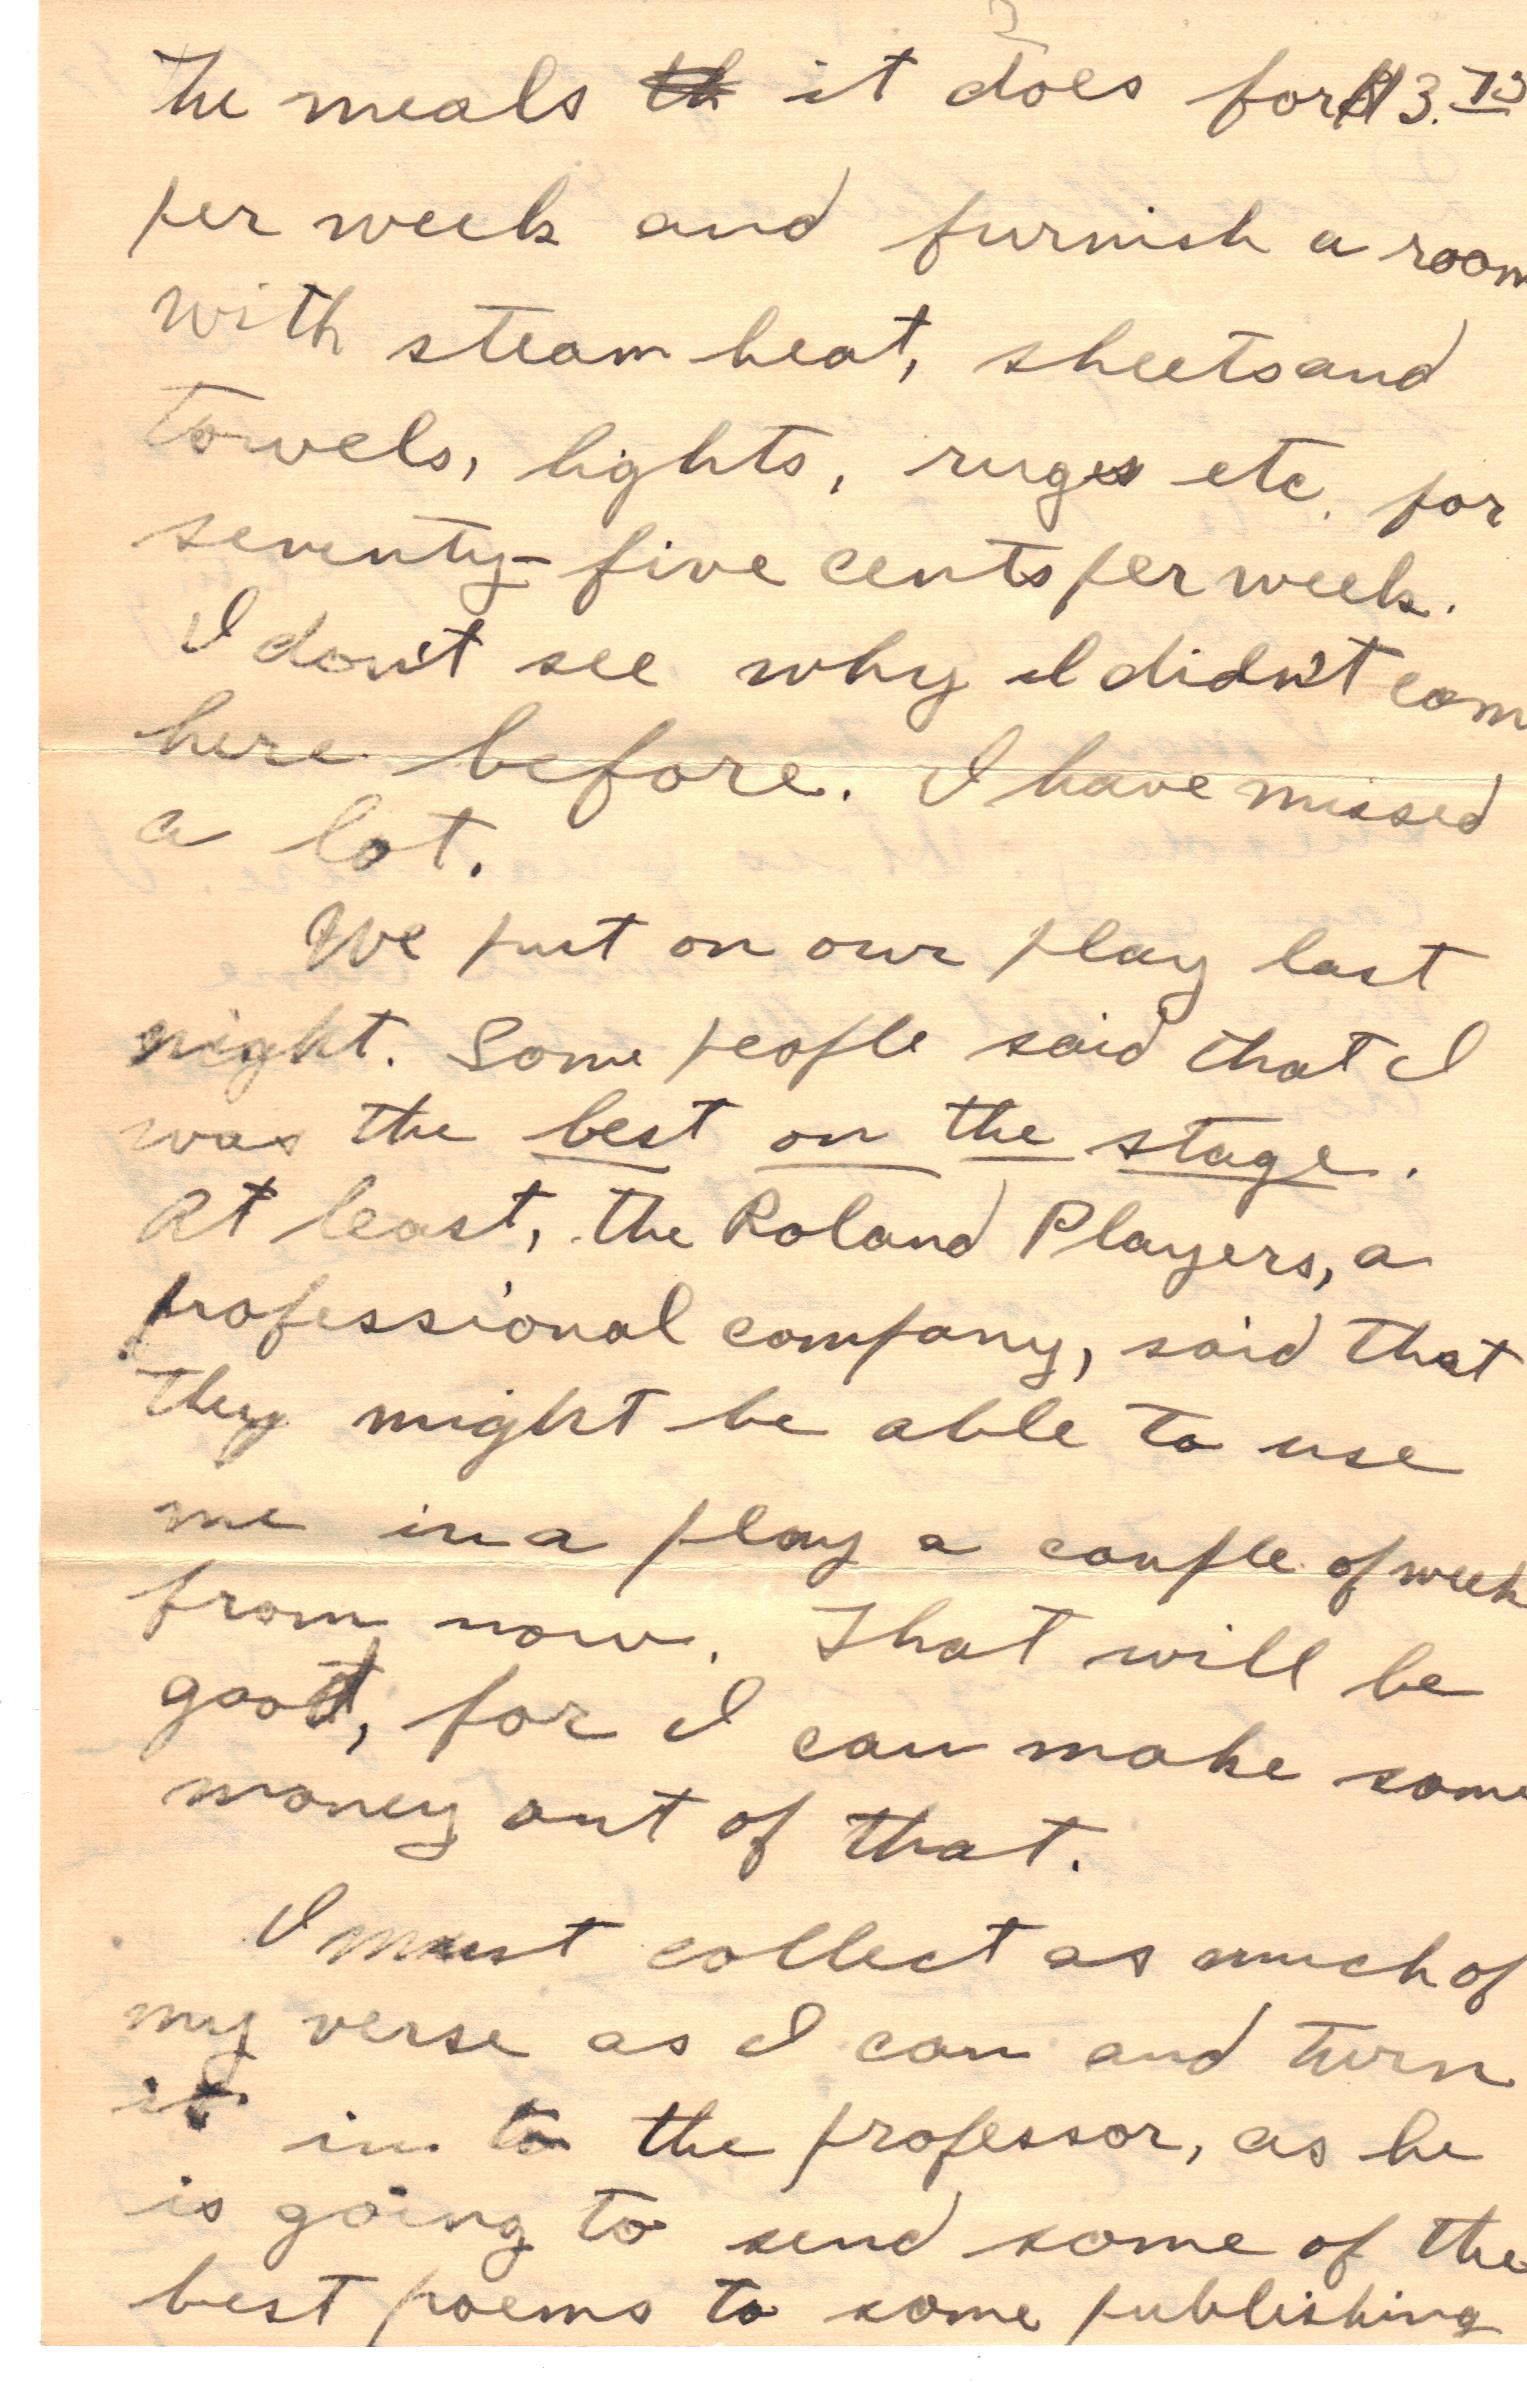 the meals it does for $3.75
per week and furnish a room
with steam heat, sheets and
towels, lights, rugs etc. for
seventy-five cents per week.
I don't see why I didn't com
here before. I have missed
a lot.
We put on our play last
night. Some people said that I
was the best on the stage.
At least, the Roland Players, a
professional company, said that
they might be able to use
me in a play a couple of week
from now. That will be
good, for I can make some
money out of that.
I must collect as much of
my verse as I can and turn
it in to the professor, as he
is going to send some of the
best poems to some publishing